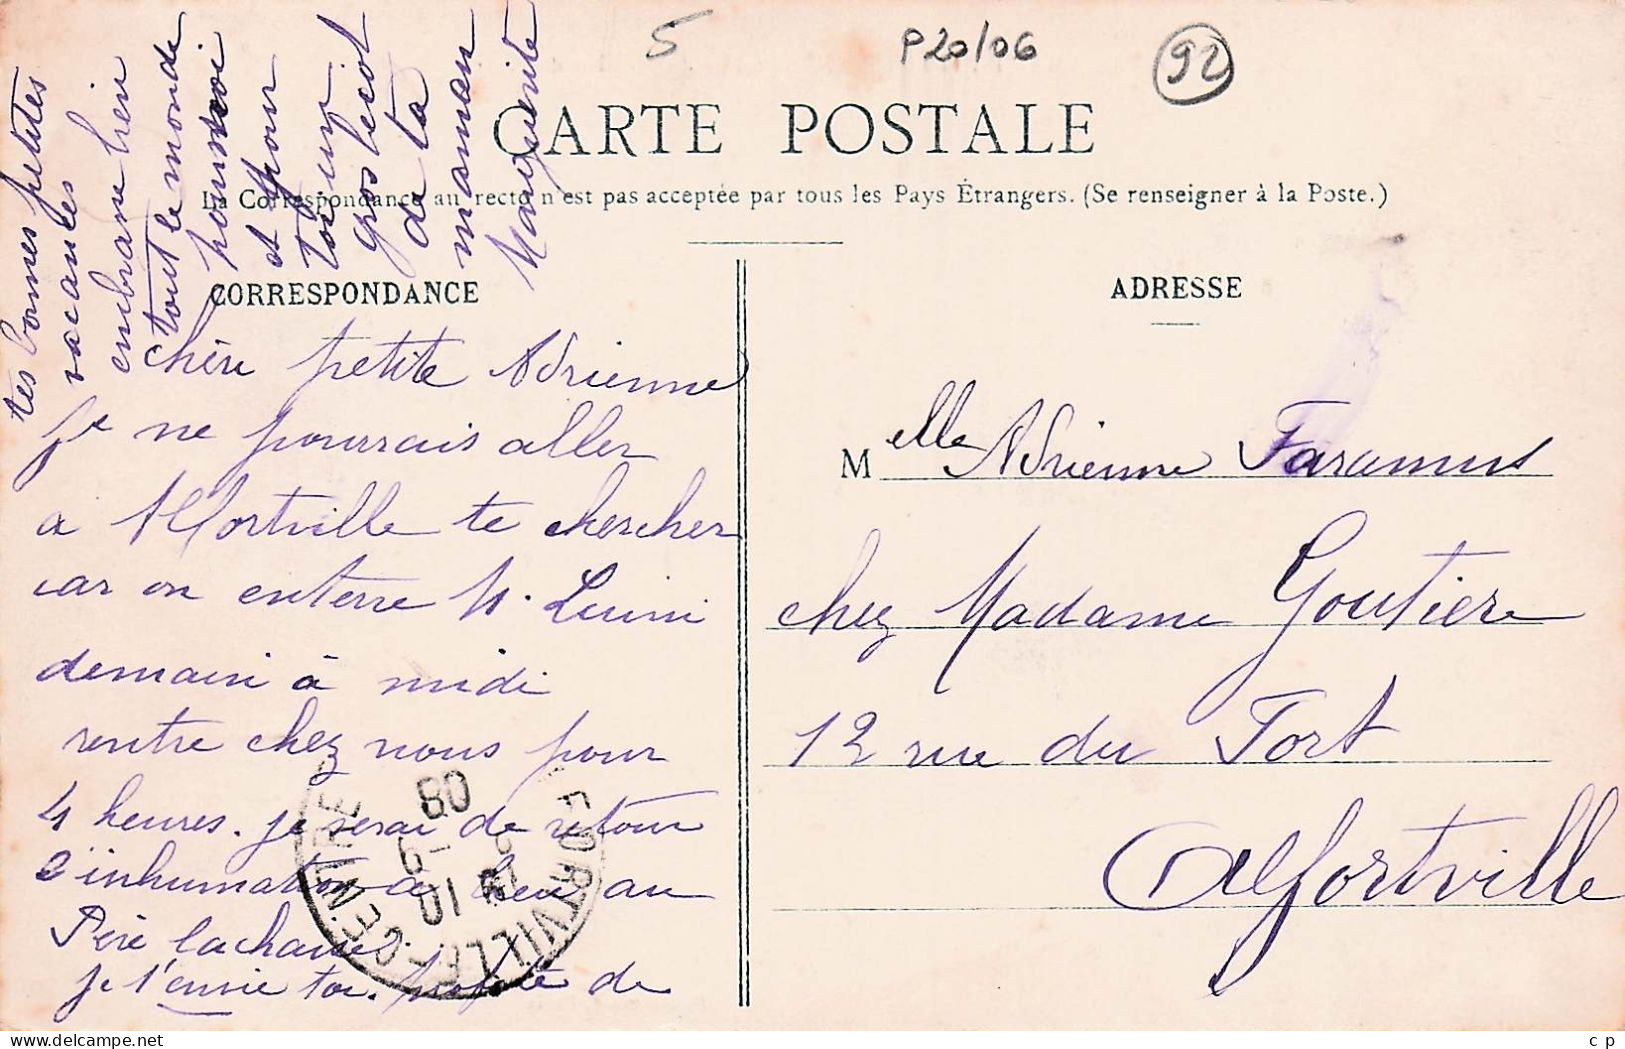 5
P20/06
92
CARTE POSTALE
La Correspondance au recto n'est pas acceptée par tous les Pays Étrangers. (Se renseigner à la Poste.)
CORRESPONDANCE
chère petite Adrienne
je ne pourrais aller
a Alfortville te chercher
car on enterre M. Luini
demain à midi
rentre chez nous pour
4 heures. je serai de retour
l'inhumation a lieu au
Père lachaise.
je t'envie toi. profite de
tes bonnes petites
vacances
embrasse bien
tout le monde
pour moi
et pour
toi un
gros bécot
de ta
maman
Marguerite
ADRESSE
Melle Adrienne
chez Madame Goutière
12 rue du Fort
Alfortville
ALFORTVILLE
CENTRE
08
delcampe.net
c p